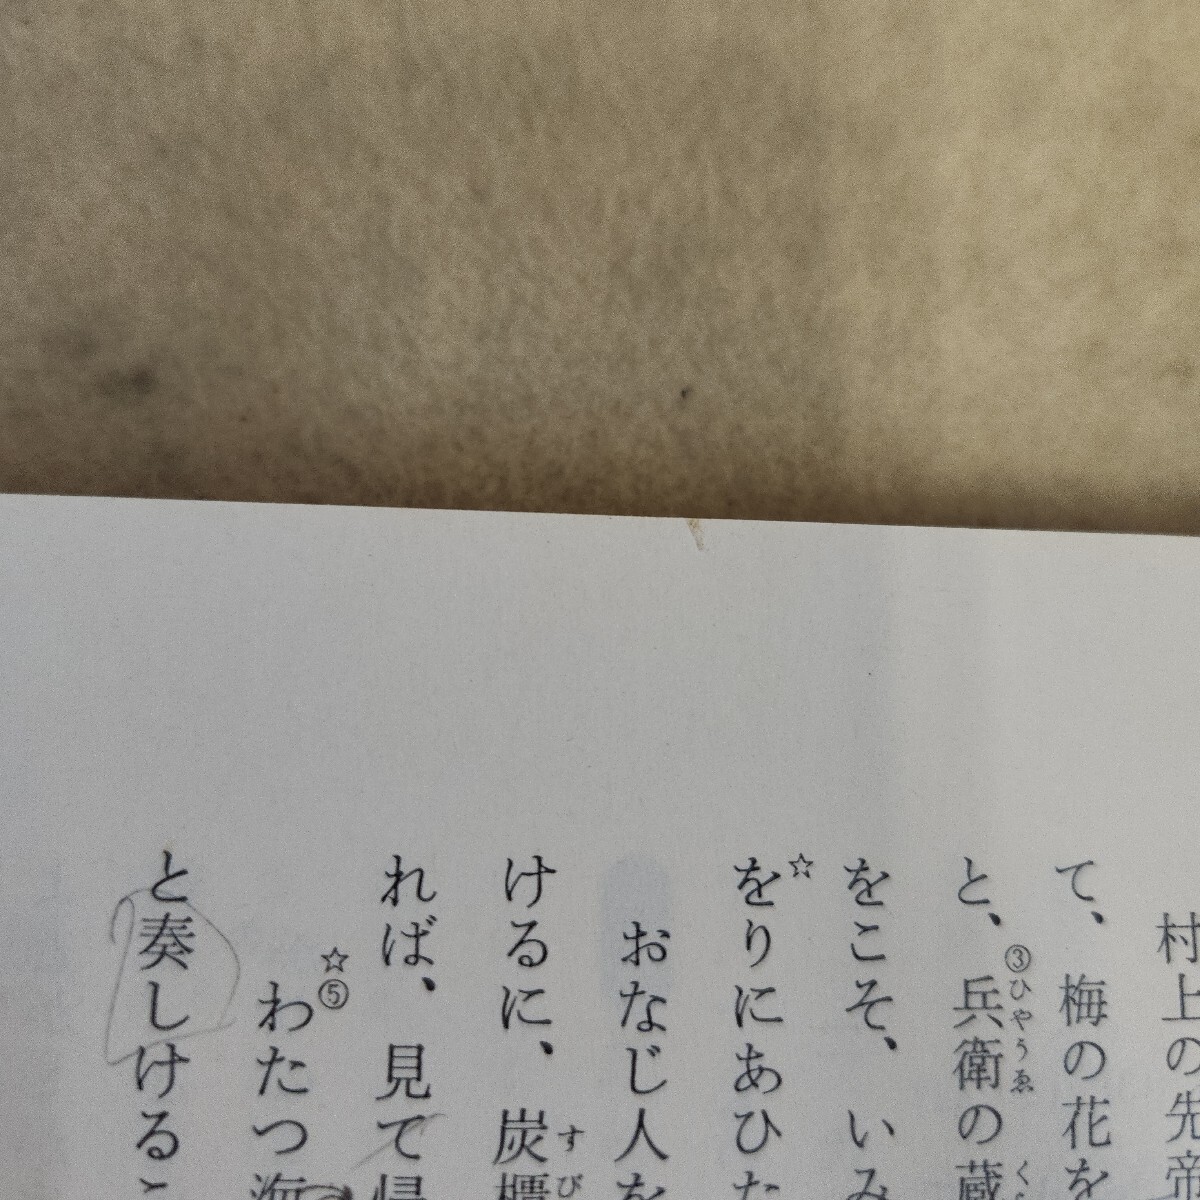 村上の先帝
て、梅の花を
と、③兵衛の蔵
ひやうゑ
く
をこそ、いみ
☆
をりにあひた
おなじ人を
けるに、炭櫃
すび
れば、見て帰
☆⑤
わたつ海
と奏しけるこ